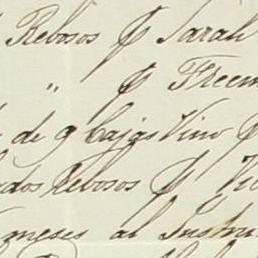 Rebosos ₱ Sarah
" ₱ Freem
de 9 Cajas Vino ₱
dos Rebosos ₱ Vi
meses al Instru